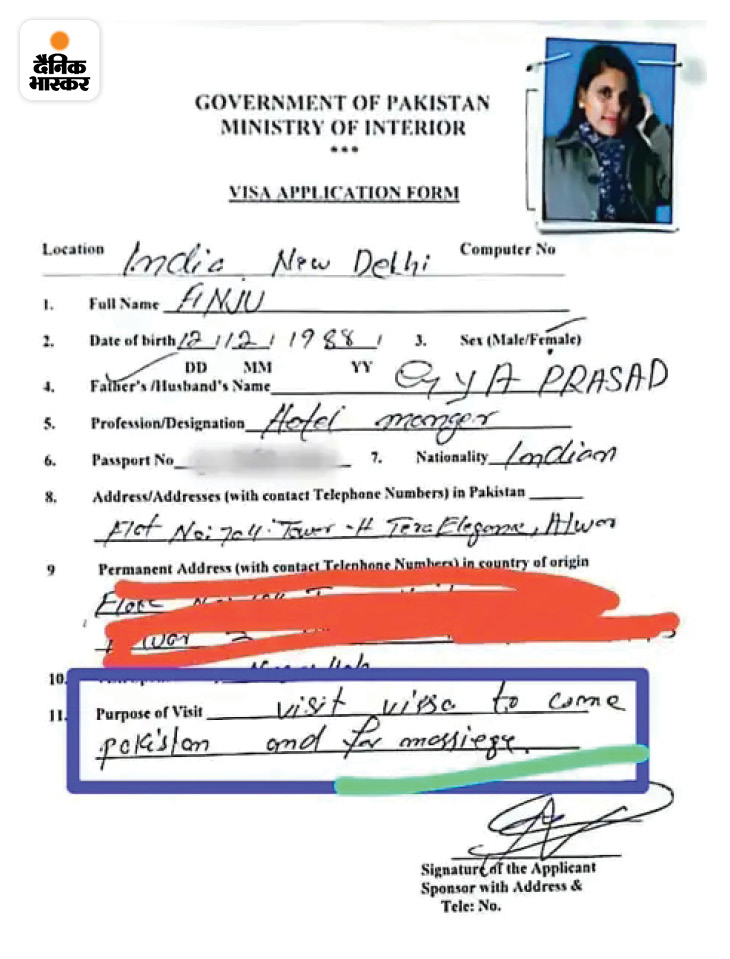 दैनिक
भास्कर
GOVERNMENT OF PAKISTAN
MINISTRY OF INTERIOR
***
VISA APPLICATION FORM
Location India New Delhi Computer No
1. Full Name ANJU
2. Date of birth 12/12/1988 3. Sex (Male/Female)
DD MM YY
4. Father's /Husband's Name GYA PRASAD
5. Profession/Designation Hotel manger
6. Passport No 7. Nationality Indian
8. Address/Addresses (with contact Telephone Numbers) in Pakistan
Flat No: 704. Tower-H Tera Elegance, Alwar
9 Permanent Address (with contact Telephone Numbers) in country of origin
10.
11. Purpose of Visit visit visa to come
pakistan and for marriege.
Signature of the Applicant
Sponsor with Address &
Tele: No.